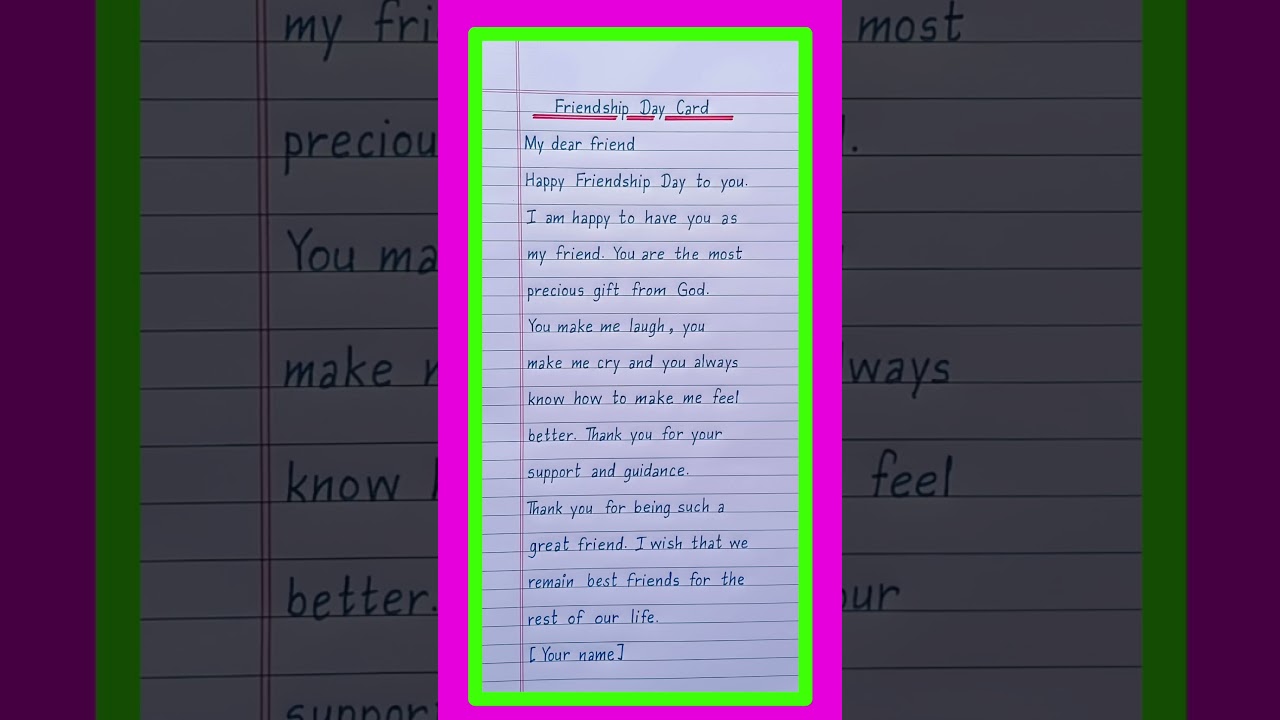 Friendship Day Card
My dear friend
Happy Friendship Day to you.
I am happy to have you as
my friend. You are the most
precious gift from God.
You make me laugh, you
make me cry and you always
know how to make me feel
better. Thank you for your
support and guidance.
Thank you for being such a
great friend. I wish that we
remain best friends for the
rest of our life.
[Your name]